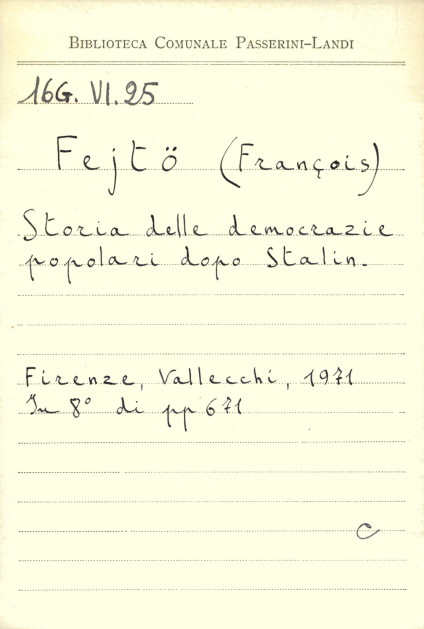 BIBLIOTECA COMUNALE PASSERINI-LANDI
16G. VI. 25
Fejtö (François)
Storia delle democrazie
popolari dopo Stalin.
Firenze, Vallecchi, 1971
In 8° di pp 671
C